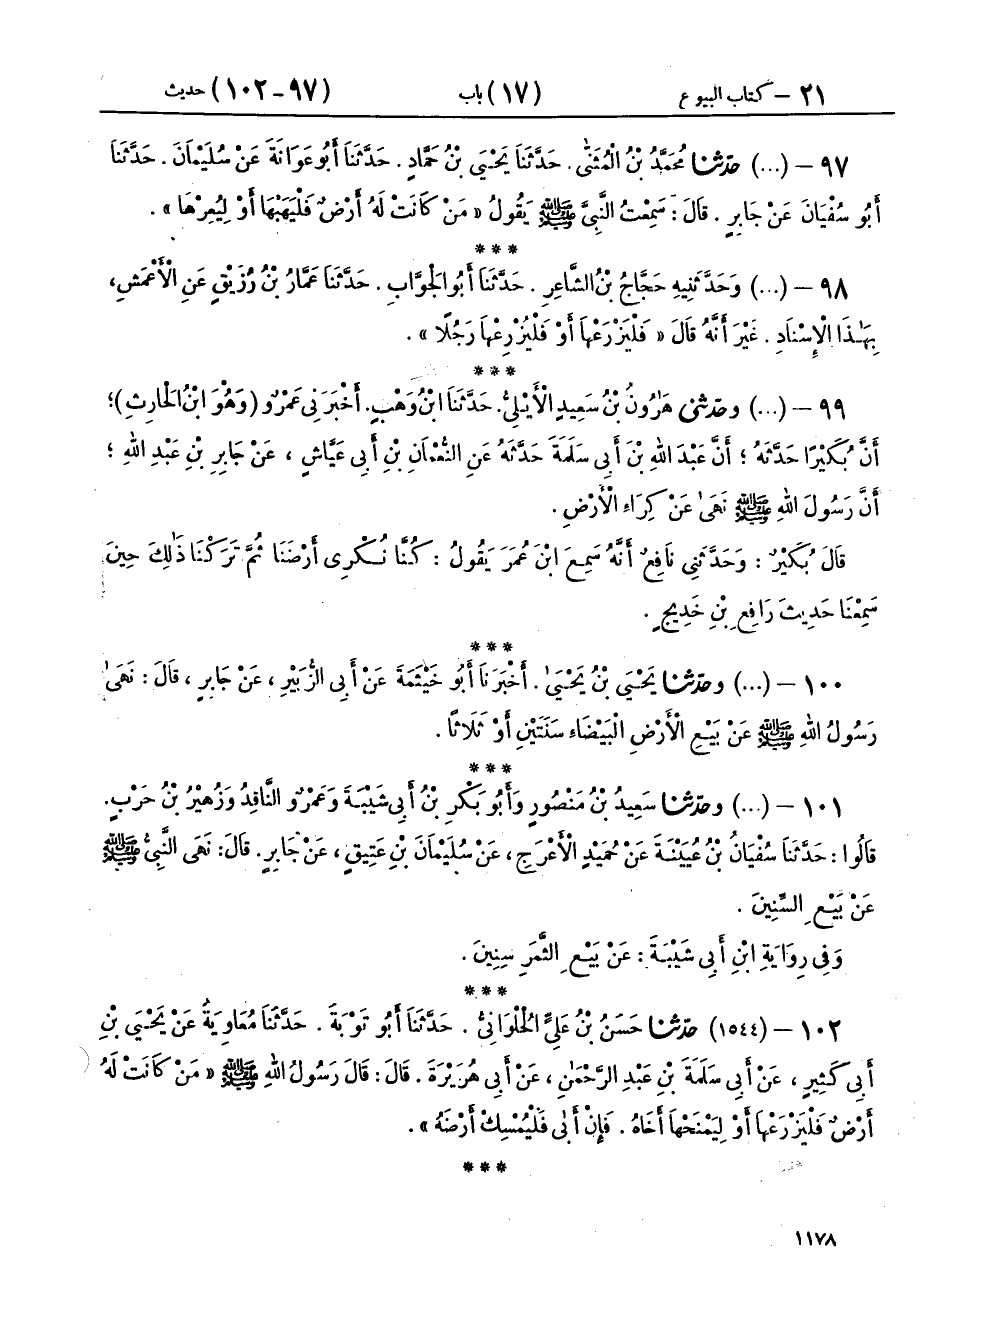 ٢١ – كتاب البيوع (١٧) باب (٩٧–١٠٢) حديث
٩٧ – (...) حدّثنا مُحَمَّدُ بْنُ الْمُثَنَّىٰ. حَدَّثَنَا يَحْيَىٰ بْنُ حَمَّادٍ. حَدَّثَنَا أَبُو عَوَانَةَ عَنْ سُلَيْمَانَ. حَدَّثَنَا
أَبُو سُفْيَانَ عَنْ جَابِرٍ. قَالَ: سَمِعْتُ النَّبِيَّ ﷺ يَقُولُ «مَنْ كَانَتْ لَهُ أَرْضٌ فَلْيَهَبْهَا أَوْ لِيُعِرْهَا».
***
٩٨ – (...) وَحَدَّثَنِيهِ حَجَّاجُ بْنُ الشَّاعِرِ. حَدَّثَنَا أَبُو الْجَوَّابِ. حَدَّثَنَا عَمَّارُ بْنُ رُزَيْقٍ عَنِ الْأَعْمَشِ،
بِهَٰذَا الْإِسْنَادِ. غَيْرَ أَنَّهُ قَالَ «فَلْيَزْرَعْهَا أَوْ فَلْيُزْرِعْهَا رَجُلًا».
***
٩٩ – (...) وحدّثنى هَارُونُ بْنُ سَعِيدٍ الْأَيْلِيُّ. حَدَّثَنَا ابْنُ وَهْبٍ. أَخْبَرَنِي عَمْرٌو (وَهُوَ ابْنُ الْحَارِثِ)؛
أَنَّ بُكَيْرًا حَدَّثَهُ؛ أَنَّ عَبْدَ اللهِ بْنَ أَبِي سَلَمَةَ حَدَّثَهُ عَنِ النُّعْمَانِ بْنِ أَبِي عَيَّاشٍ، عَنْ جَابِرِ بْنِ عَبْدِ اللهِ؛
أَنَّ رَسُولَ اللهِ ﷺ نَهَىٰ عَنْ كِرَاءِ الْأَرْضِ.
قَالَ بُكَيْرٌ: وَحَدَّثَنِي نَافِعٌ أَنَّهُ سَمِعَ ابْنَ عُمَرَ يَقُولُ: كُنَّا نُكْرِي أَرْضَنَا ثُمَّ تَرَكْنَا ذَٰلِكَ حِينَ
سَمِعْنَا حَدِيثَ رَافِعِ بْنِ خَدِيجٍ.
***
١٠٠ – (...) وحدّثنا يَحْيَىٰ بْنُ يَحْيَىٰ. أَخْبَرَنَا أَبُو خَيْثَمَةَ عَنْ أَبِي الزُّبَيْرِ، عَنْ جَابِرٍ، قَالَ: نَهَىٰ
رَسُولُ اللهِ ﷺ عَنْ بَيْعِ الْأَرْضِ الْبَيْضَاءِ سَنَتَيْنِ أَوْ ثَلَاثًا.
***
١٠١ – (...) وحدّثنا سَعِيدُ بْنُ مَنْصُورٍ وَأَبُو بَكْرِ بْنُ أَبِي شَيْبَةَ وَعَمْرٌو النَّاقِدُ وَزُهَيْرُ بْنُ حَرْبٍ.
قَالُوا: حَدَّثَنَا سُفْيَانُ بْنُ عُيَيْنَةَ عَنْ حُمَيْدٍ الْأَعْرَجِ، عَنْ سُلَيْمَانَ بْنِ عَتِيقٍ، عَنْ جَابِرٍ. قَالَ: نَهَى النَّبِيُّ ﷺ
عَنْ بَيْعِ السِّنِينَ.
وَفِي رِوَايَةِ ابْنِ أَبِي شَيْبَةَ: عَنْ بَيْعِ الثَّمَرِ سِنِينَ.
***
١٠٢ – (١٥٤٤) حدّثنا حَسَنُ بْنُ عَلِيٍّ الْحُلْوَانِيُّ. حَدَّثَنَا أَبُو تَوْبَةَ. حَدَّثَنَا مُعَاوِيَةُ عَنْ يَحْيَىٰ بْنِ
أَبِي كَثِيرٍ، عَنْ أَبِي سَلَمَةَ بْنِ عَبْدِ الرَّحْمَٰنِ، عَنْ أَبِي هُرَيْرَةَ. قَالَ: قَالَ رَسُولُ اللهِ ﷺ «مَنْ كَانَتْ لَهُ
أَرْضٌ فَلْيَزْرَعْهَا أَوْ لِيَمْنَحْهَا أَخَاهُ. فَإِنْ أَبَىٰ فَلْيُمْسِكْ أَرْضَهُ».
***
١١٧٨